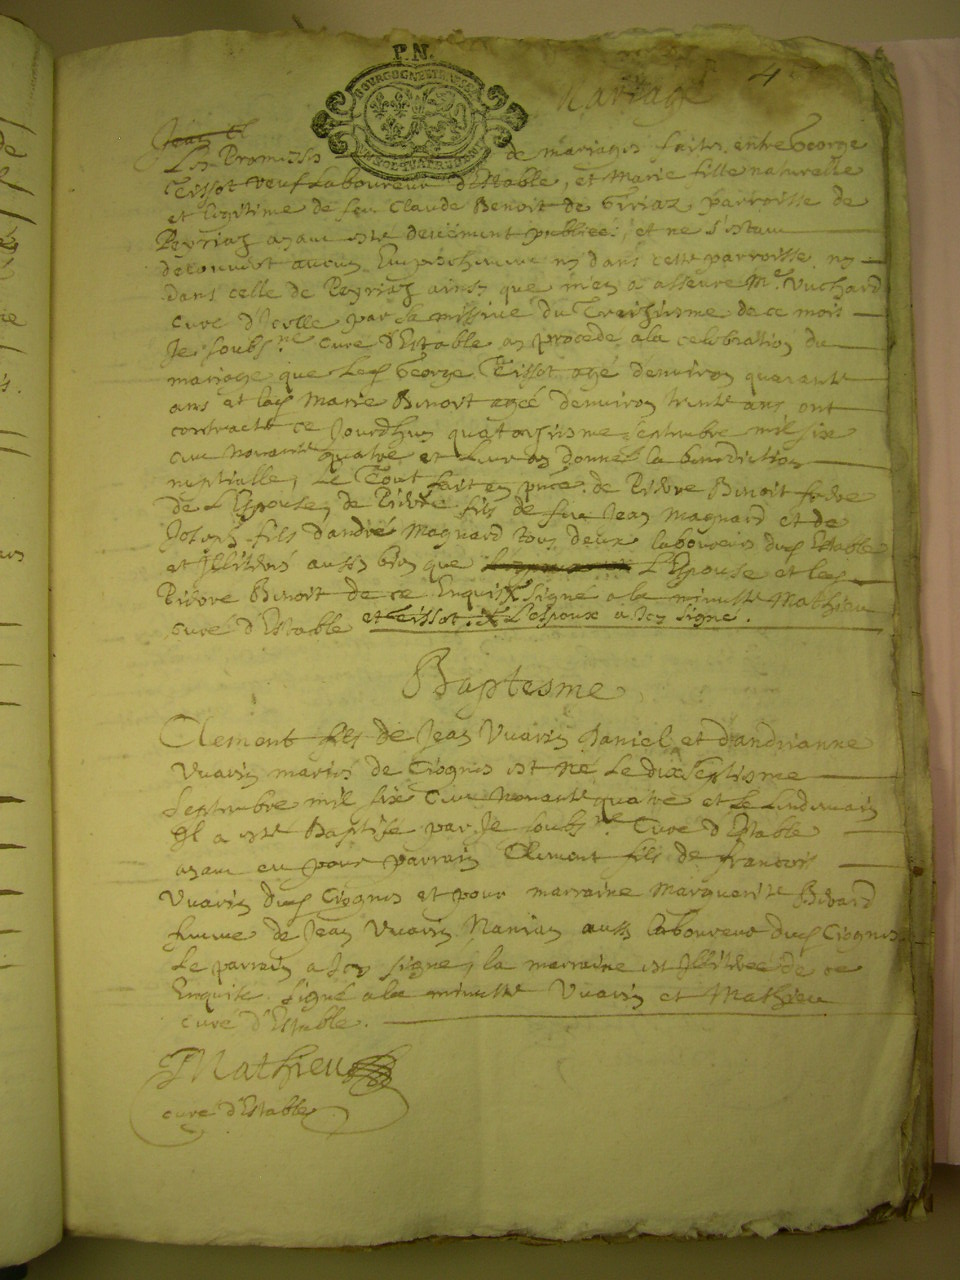 P.N.
BOURGOGNE ET BRESSE
4
Mariage
Les Promesses de mariages faites entre George
Tissot veuf laboureur d'Estable, et Marie fille naturelle
et legitime de feu Claude Benoit de Giriaz parroisse de
Peyriaz ayant esté deuement publiees, et ne s'estant
decouvert aucun Empeschement ny dans cette parroisse ny
dans celle de Peyriaz ainsy que m'en a asseuré Mr. Vuchard
curé d'Iselle par sa missive du Treisiesme de ce mois
Je soubs.né curé d'Estable ay procedé a la celebration du
mariage que led George Tissot agé denviron quarante
ans et lad Marie Benoit agée denviron trente ans ont
contracté ce Jourdhuy quatorsiesme septembre mil six
cent nonante quatre et leur ay donné la benediction
nuptialle, Le Tout fait en pnce. de Pierre Benoit frere
de L'Espouse, de Pierre fils de feu Jean Magnard et de
Joseph fils d'andré Magnard tous deux laboureurs dud Estable
et Illitérés aussy bien que L'Espouse et led
Pierre Benoit de ce Enquis Signé a la minutte Mathieu
curé d'Estable et Tissot L'espoux a Icy signé.
Baptesme
Clement fils de Jean Vuarin Janiel et d'andrianne
Vuarin mariés de Ciognes est né Le dix septiesme
Septembre mil six Cent Nonante quatre et Le Lendemain
Il a esté Baptisé par Je soubs.né Curé d'Estable
ayant eu pour parrain Clement fils de francois
Vuarin dud Ciognes et pour marraine Marguerite Bevard
femme de Jean Vuarin Nanian aussy laboureur dud Ciognes
Le parrain a Icy signé, la marraine est Illiterée de ce
Enquise. Signé a la minutte Vuarin et Mathieu
curé d'Estable.
Mathieu
curé d'Estable